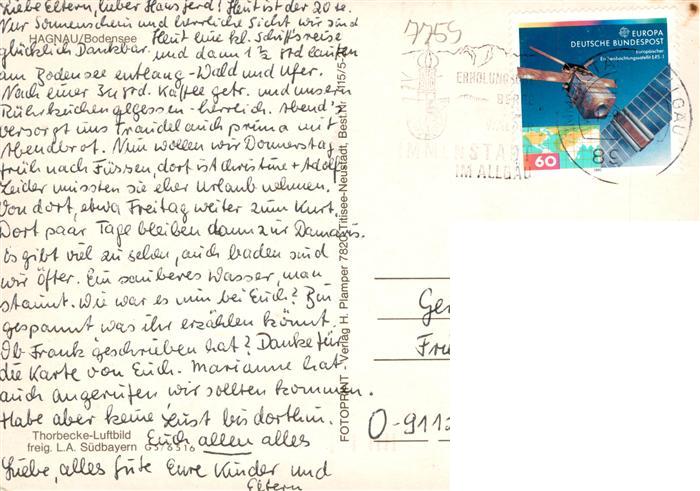 Liebe Eltern, lieber Hansjerd! Heut ist der 20te.
Nur Sonnenschein und herrliche Sicht wir sind
HAGNAU/Bodensee
Heut eine kl. Schiffsreise
glücklich Dankbar. und dann 1 ½ Std laufen
am Bodensee entlang - Wald und Ufer.
Nach einer ¾ Std. Kaffee getr. und unseren
Rührkuchen gegessen - herrlich. Abend's
versorgt uns Traudel auch prima mit
Abendbrot. Nun wollen wir Donnerstag
früh nach Füssen, dort ist Christine + Adolf
Leider mussten sie eher Urlaub nehmen.
Von dort, etwa Freitag weiter zum Kurt.
Dort paar Tage bleiben dann zur Damaris.
Es gibt viel zu sehen, auch baden sind
wir öfter. Ein sauberes Wasser, man
staunt. Wie war es nun bei Euch? Bin
gespannt was ihr erzählen könnt.
Ob Frank geschrieben hat? Danke für
die Karte von Euch. Marianne hat
auch angerufen wir sollten kommen.
Habe aber keine Lust bis dorthin.
Thorbecke-Luftbild
Euch allen alles
freig. L.A. Südbayern G5/6516
Liebe, alles Gute Eure Kinder und
Eltern
FOTOPRINT - Verlag H. Plamper 7820 Titisee-Neustadt, Best.Nr.
7759
EUROPA
DEUTSCHE BUNDESPOST
Europäischer
Erdbeobachtungssatellit ERS-1
60
IMMENSTADT
IM ALLGÄU
ALLGÄU
O-911